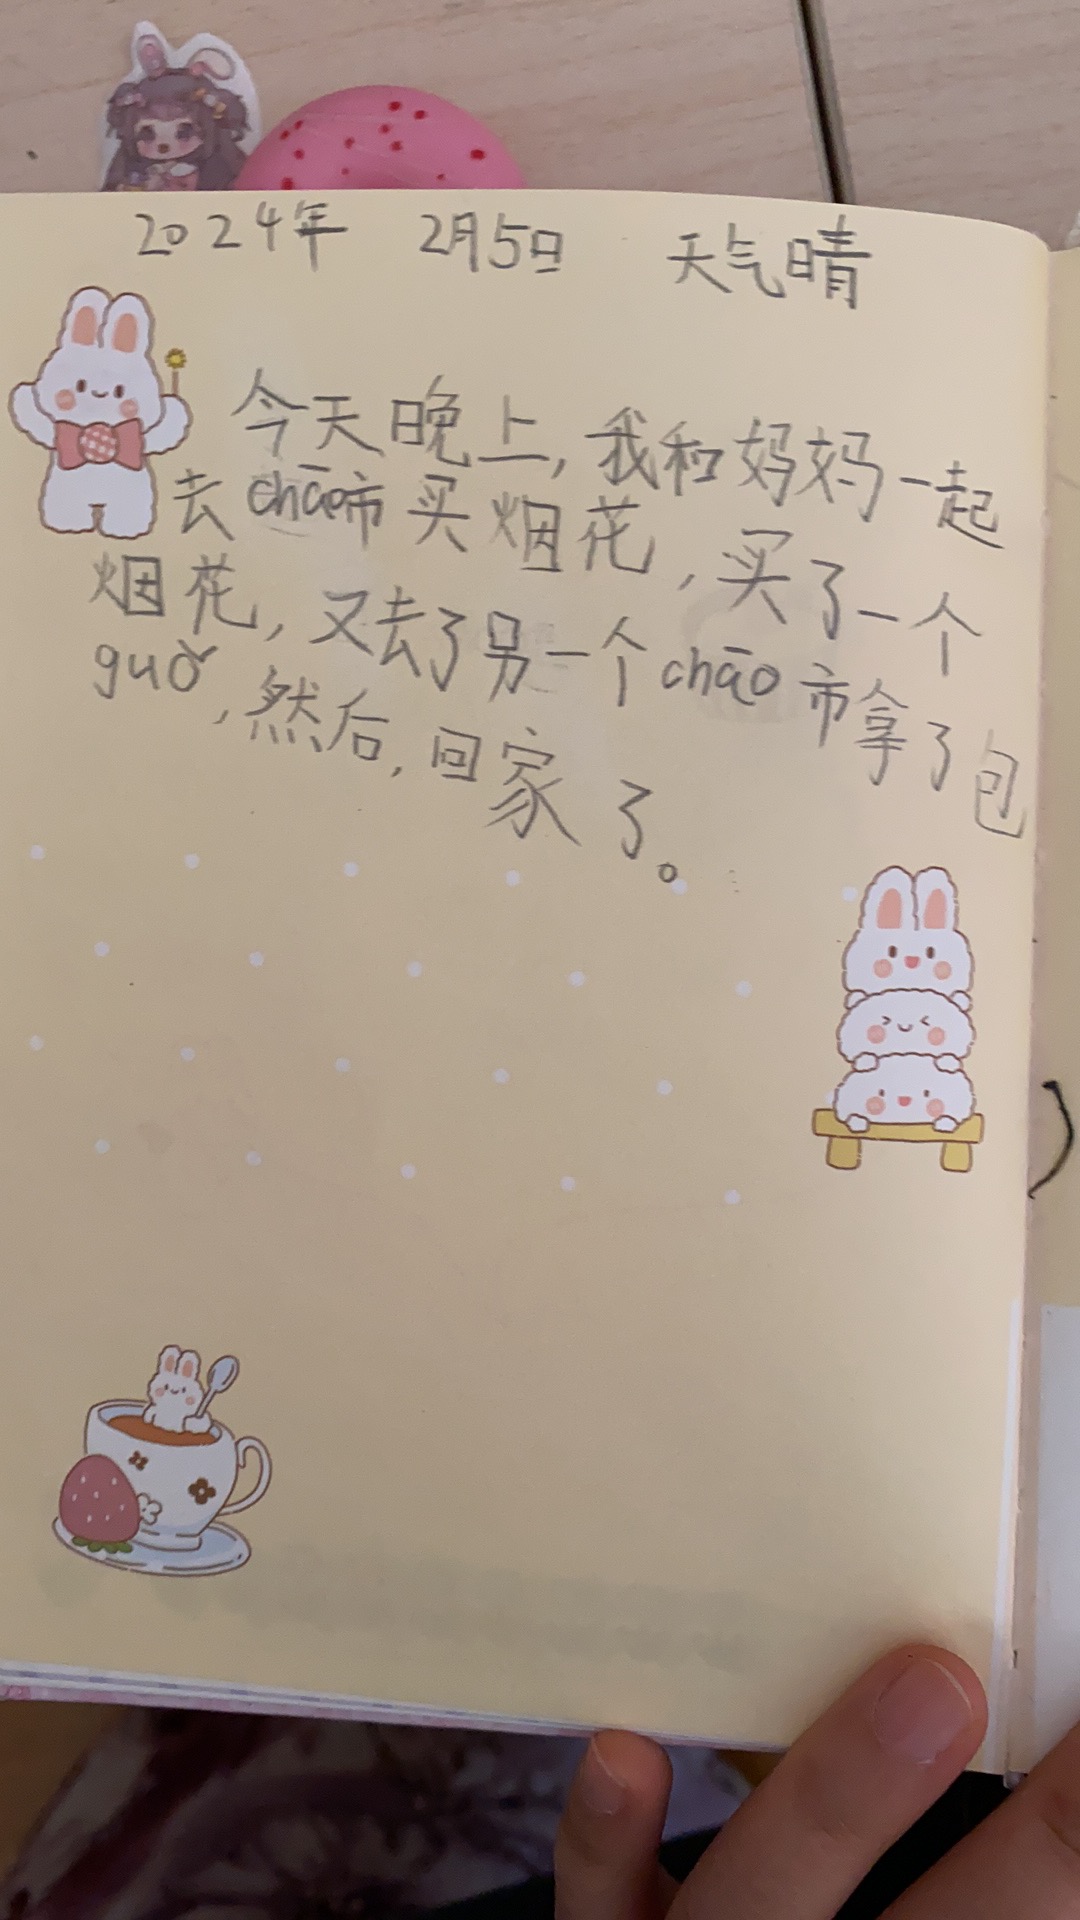 2024年 2月5日 天气晴
今天晚上,我和妈妈一起
去chāo市买烟花,买了一个
烟花,又去了另一个chāo市拿了包
guǒ,然后,回家了。